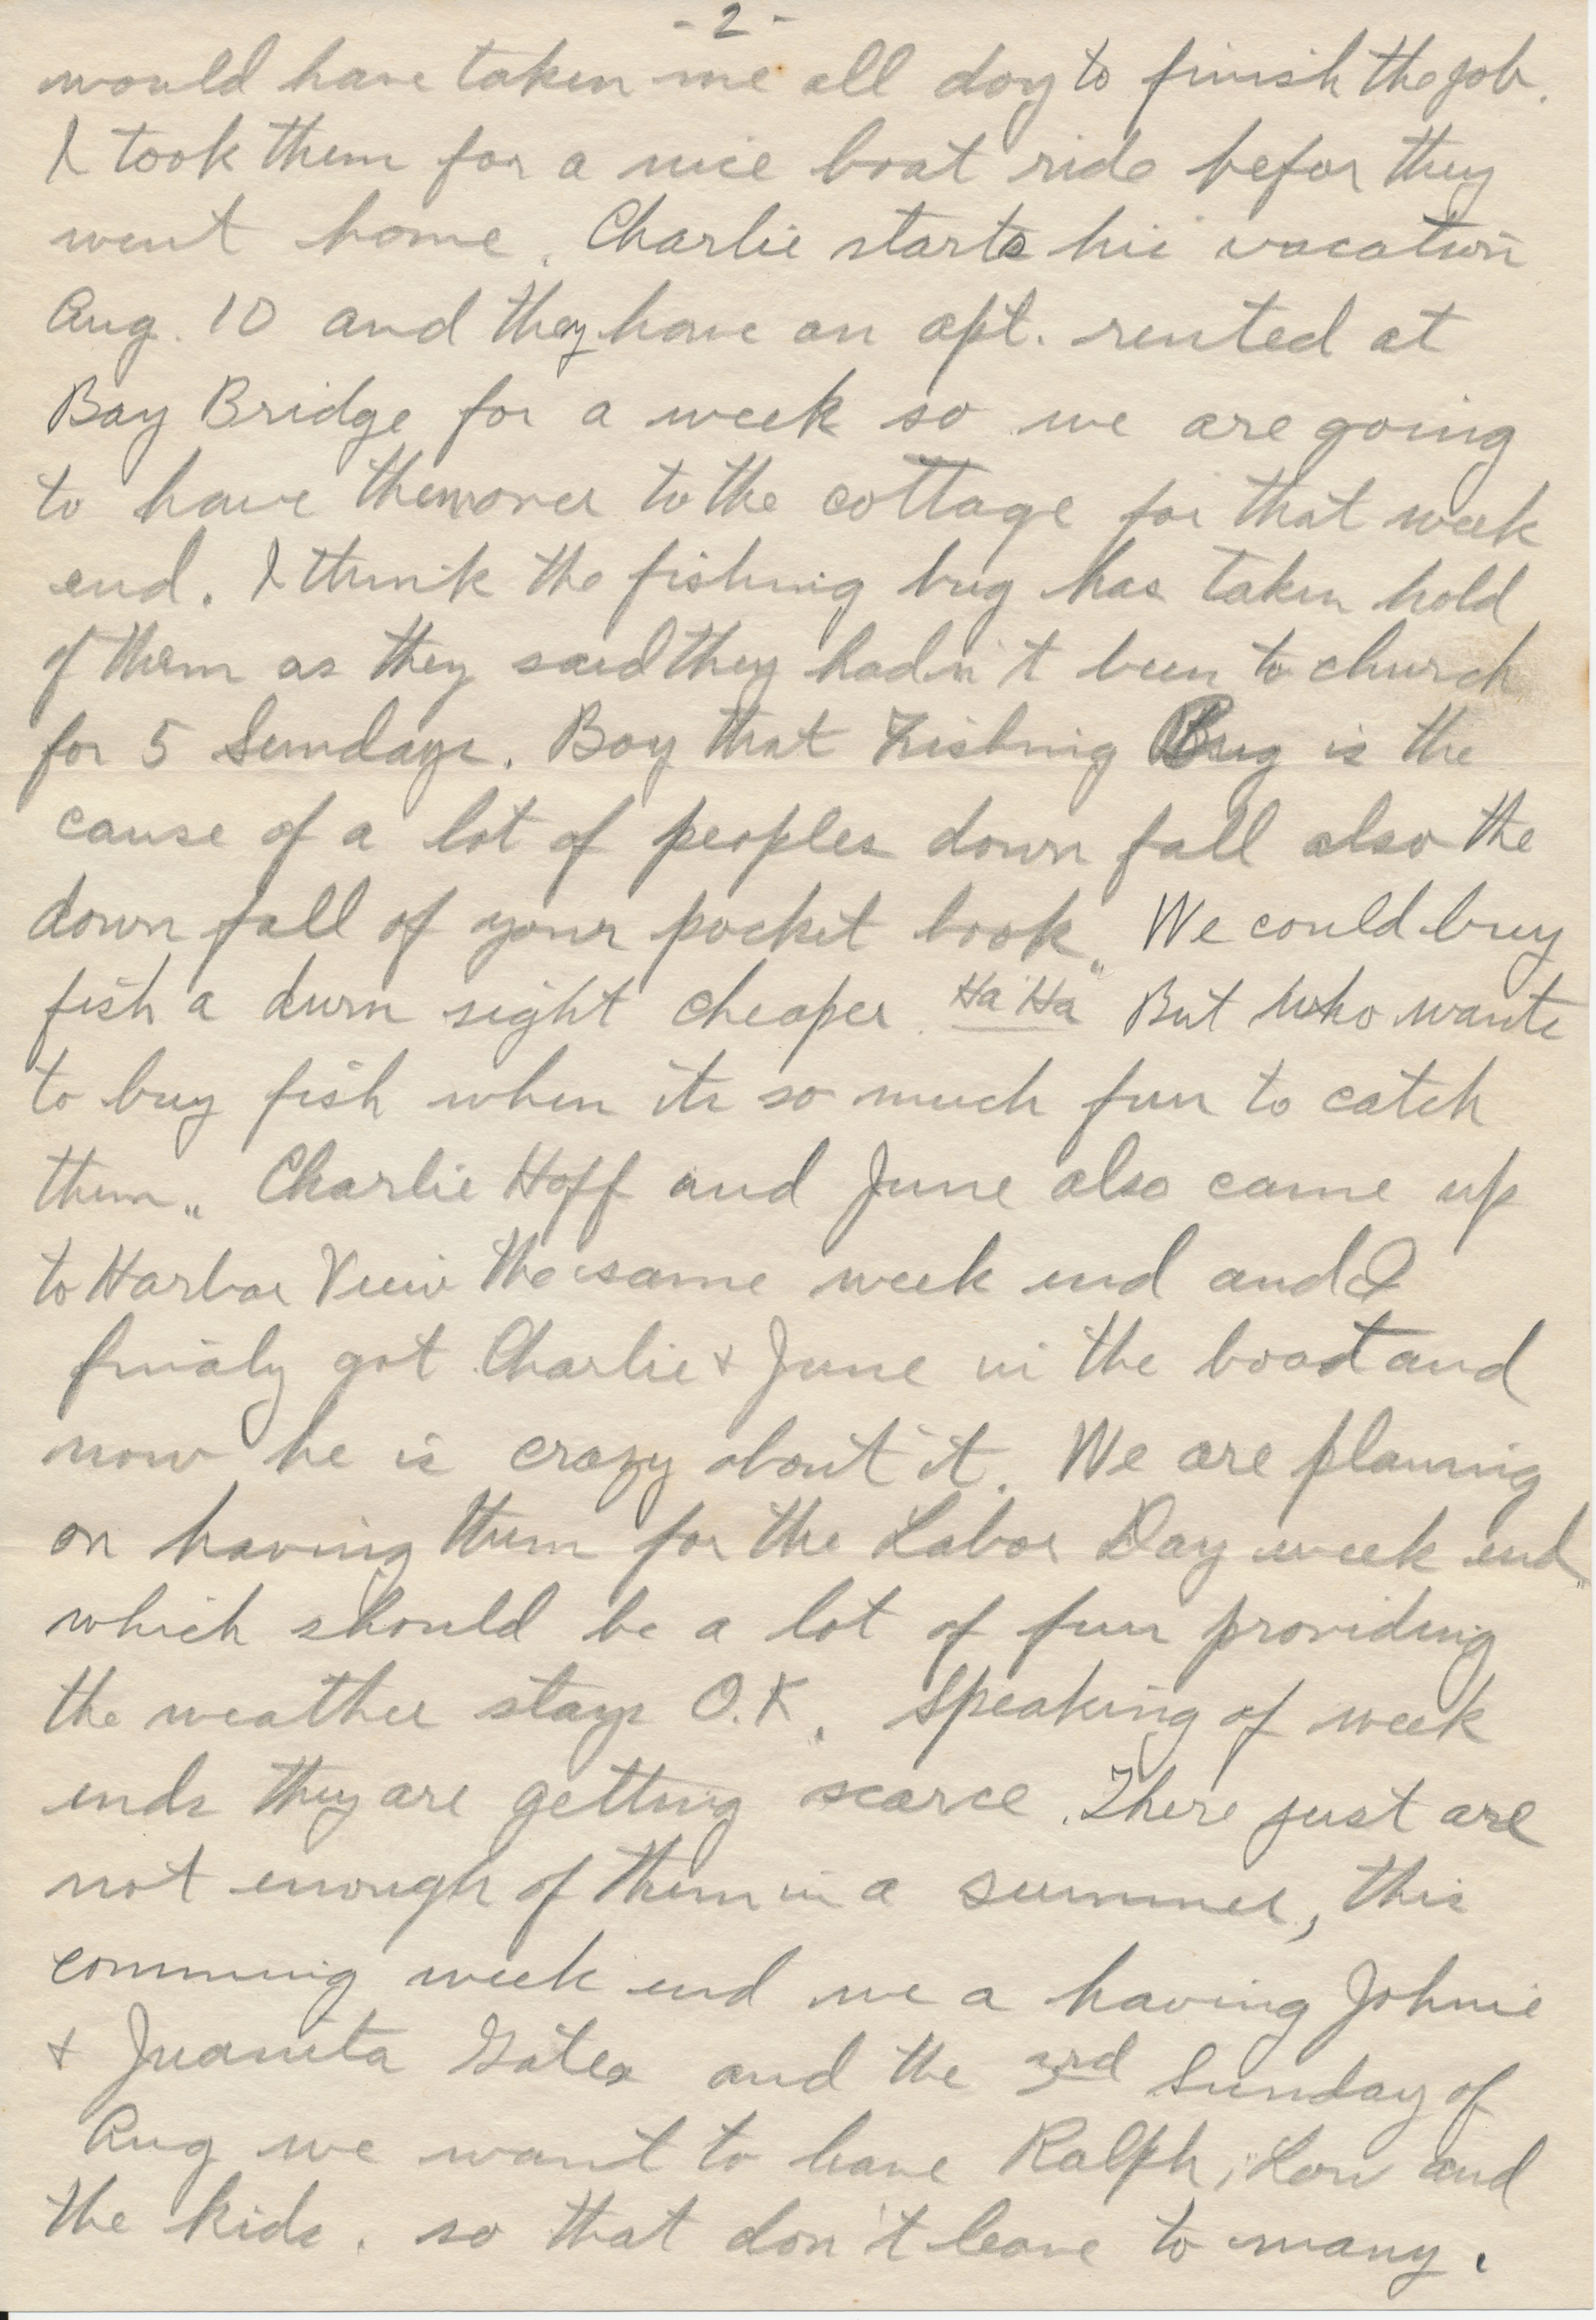 - 2 -
would have taken me all day to finish the job.
I took them for a nice boat ride befor they
went home. Charlie starts his vacation
Aug. 10 and they have an apt. rented at
Bay Bridge for a week so we are going
to have them over to the cottage for that week
end. I think the fishing bug has taken hold
of them as they said they hadn't been to church
for 5 Sundays. Boy that Fishing Bug is the
cause of a lot of peoples down fall also the
down fall of your pocket book. We could buy
fish a durn sight cheaper. Ha Ha But who wants
to buy fish when its so much fun to catch
them. Charlie Hoff and June also came up
to Harbor View the same week end and I
finaly got Charlie + June in the boat and
now he is crazy about it. We are planning
on having them for the Labor Day week end
which should be a lot of fun providing
the weather stays O.K. Speaking of week
ends they are getting scarce. There just are
not enough of them in a summer, this
comming week end we a having Johnie
+ Juanita Gates and the 3rd Sunday of
Aug we want to have Ralph, Lou and
the kids. so that don't leave to many.